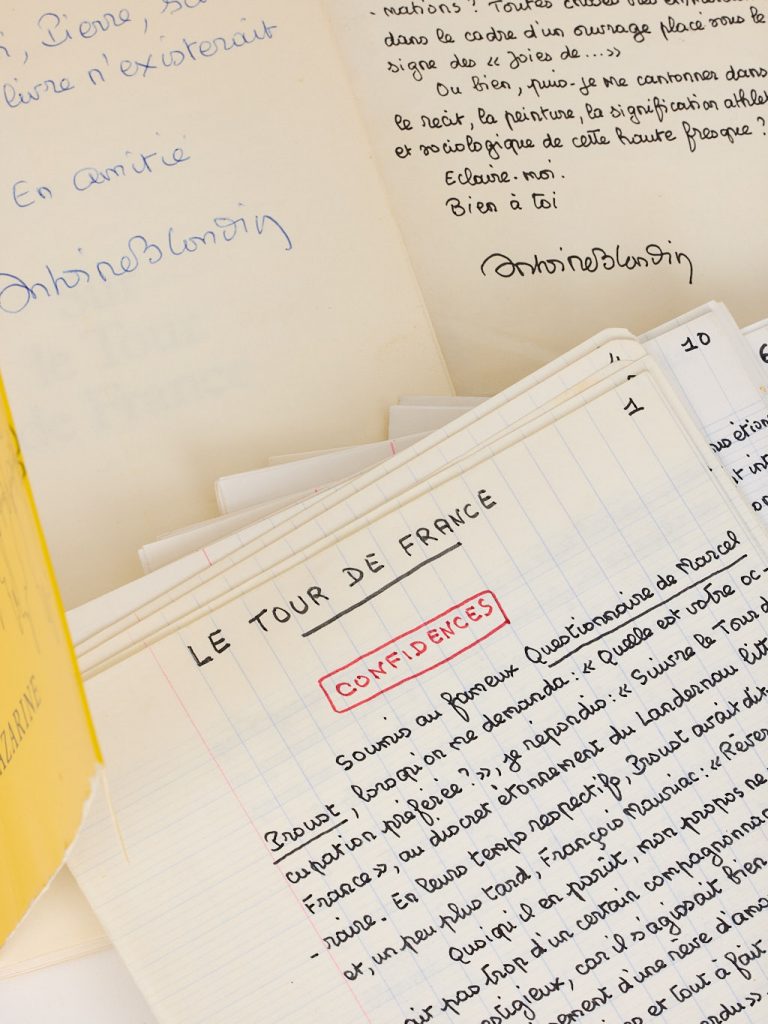 Pierre,
livre n'existerait
En amitié
Antoine Blondin
mations? Toutes
dans le cadre d'un ouvrage placé sous le
signe des « Joies de...»
Ou bien, puis-je me cantonner dans
le récit, la peinture, la signification
et sociologique de cette haute fresque?
Eclaire-moi.
Bien à toi
Antoine Blondin
10
1
LE TOUR DE FRANCE
CONFIDENCES
Soumis au fameux Questionnaire de Marcel
Proust, lorsqu'on me demanda: « Quelle est votre oc-
cupation préférée?», je répondis: « Suivre le Tour de
France», au discret étonnement du Landernau litté
-raire. En leurs temps respectifs, Proust avait dit
et, un peu plus tard, François Mauriac: « Rêver
Quoiqu'il en parût, mon propos ne
ait pas trop d'un certain compagnonna
stigieux, car il s'agissait bien
ement d'une rêve d'amo
et tout à fait
rdu».
AZARINE